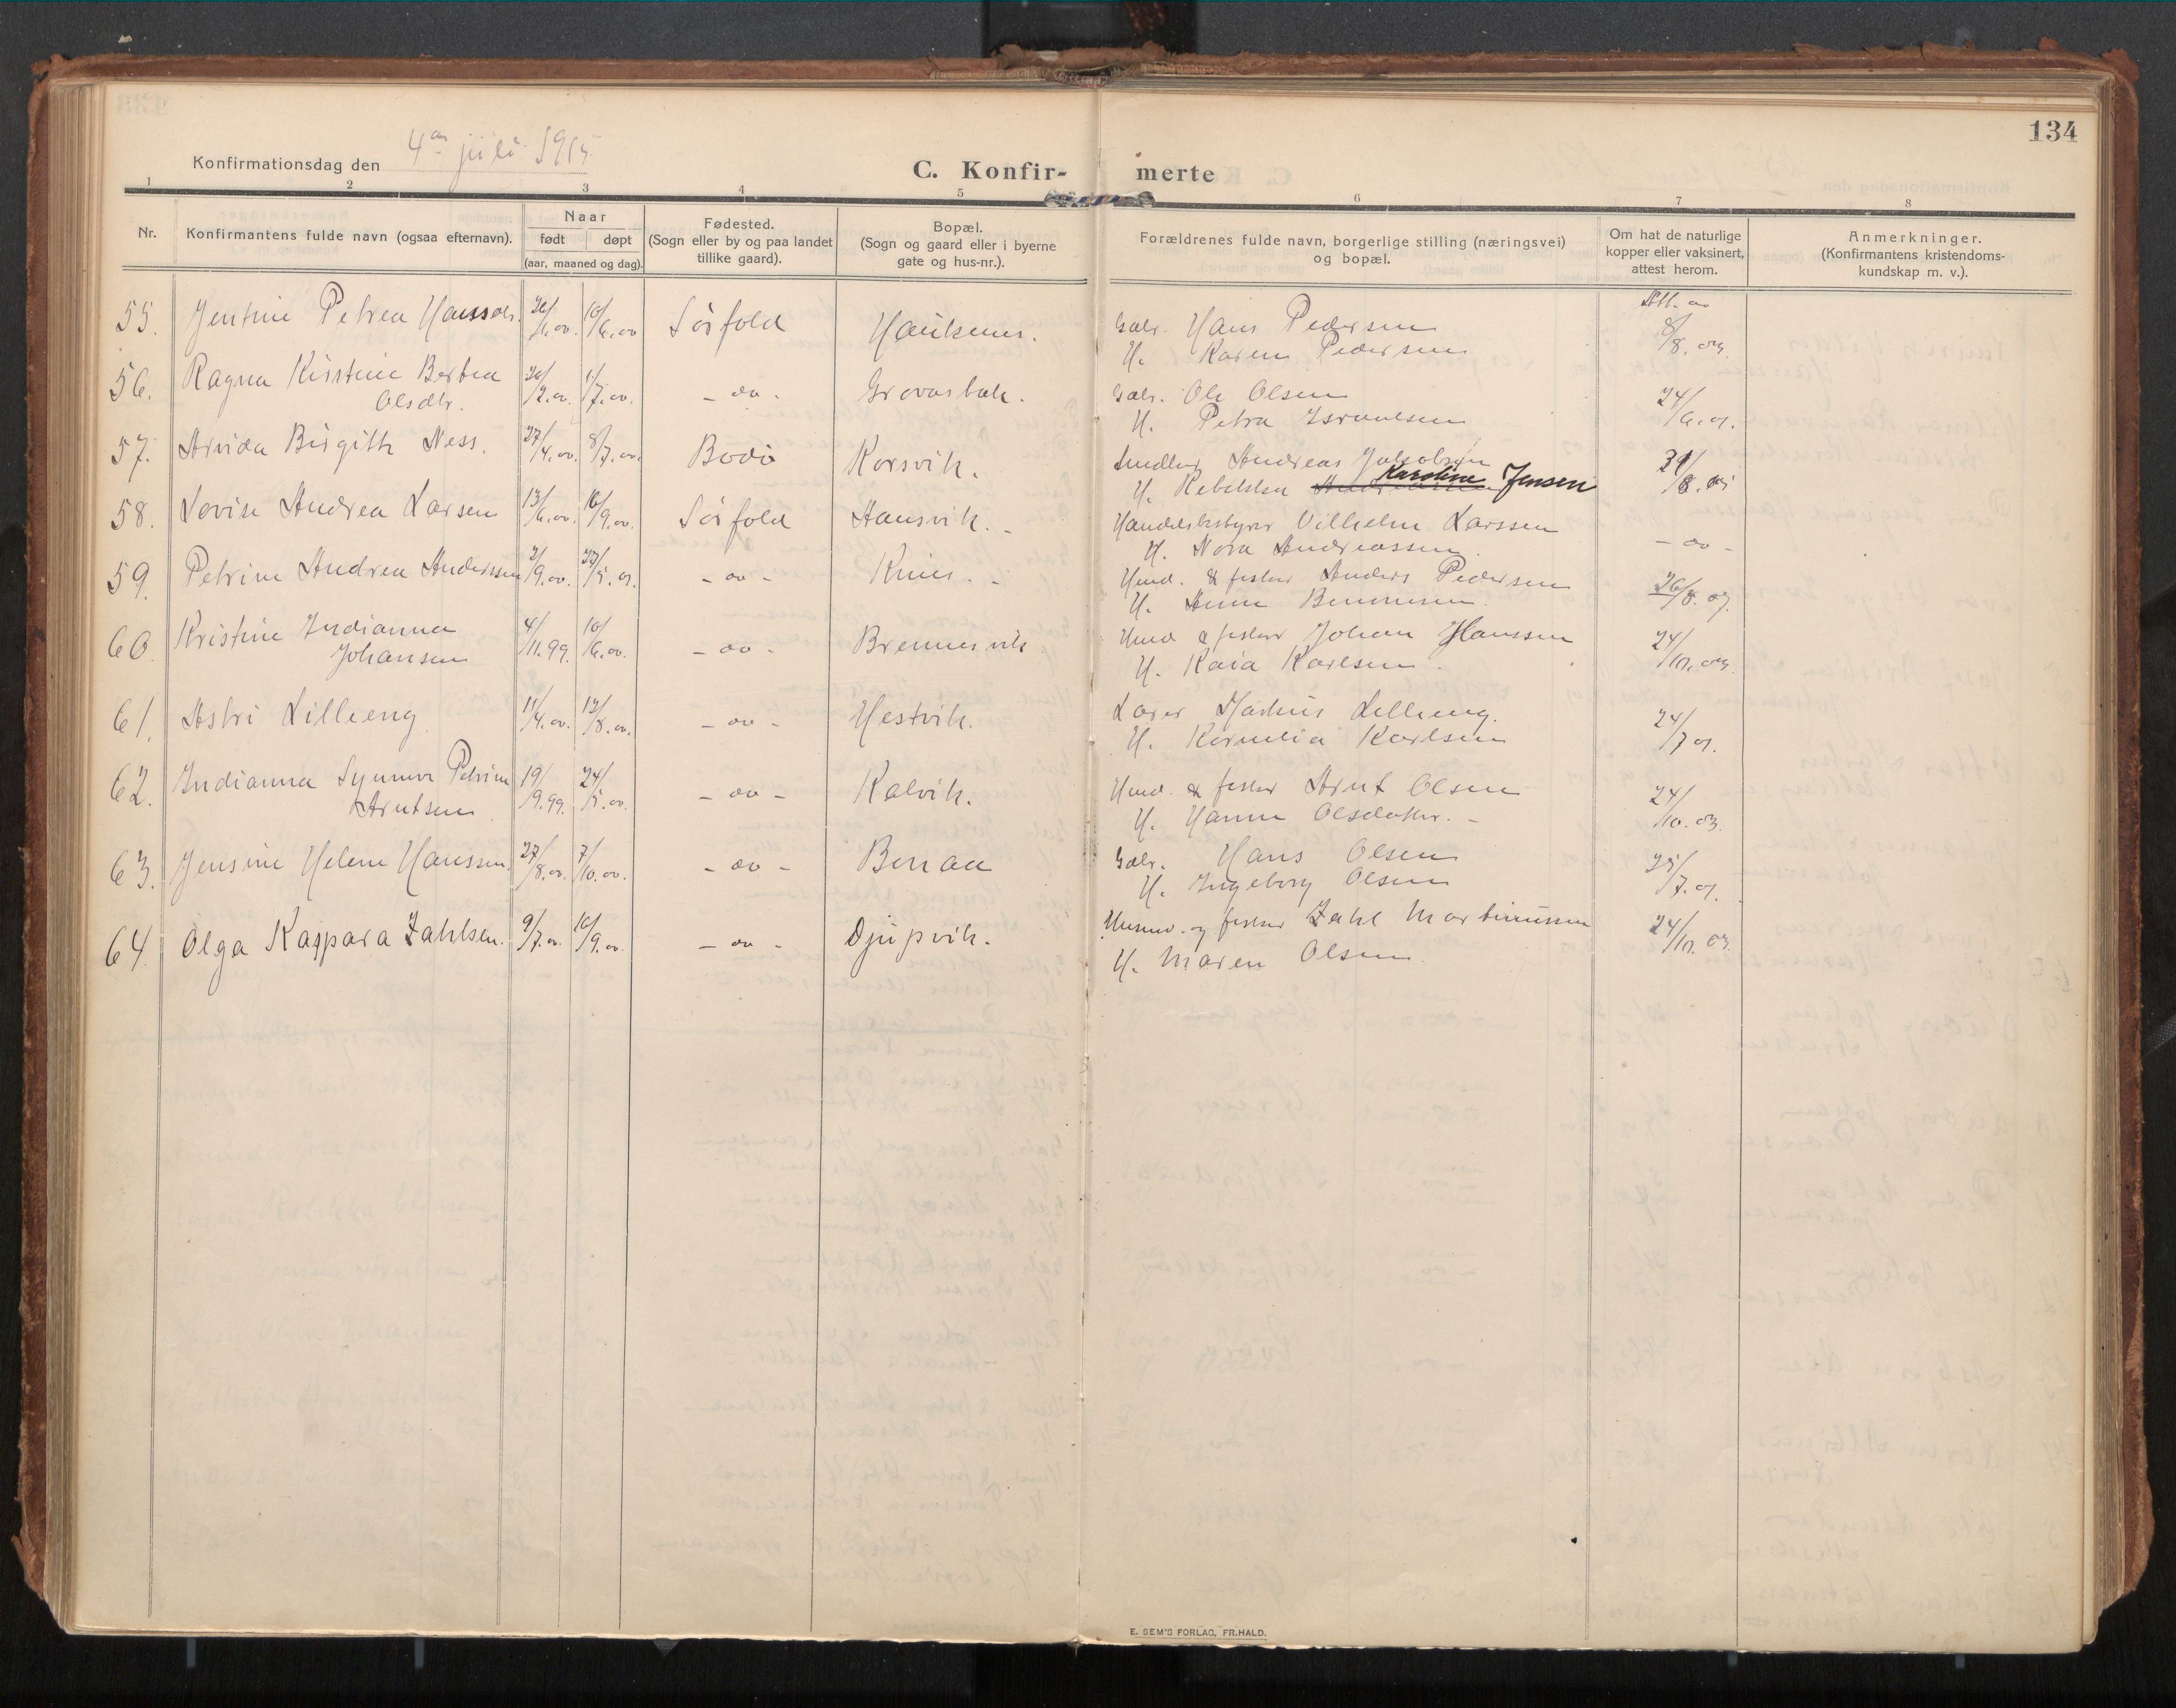 134
Konfirmationsdag den 4de juli 1915
C. Konfir- merte
1 2 3 4 5 6 7 8
Nr.
Konfirmantens fulde navn (ogsaa efternavn).
Naar
født døpt
(aar, maaned og dag).
Fødested.
(Sogn eller by og paa landet
tillike gaard).
Bopæl.
(Sogn og gaard eller i byerne
gate og hus-nr.).
Forældrenes fulde navn, borgerlige stilling (næringsvei)
og bopæl.
Om hat de naturlige
kopper eller vaksinert,
attest herom.
Anmerkninger.
(Konfirmantens kristendoms-
kundskap m. v.).
55. Jentine Petrea Hanssdtr. 10/6.00 Sørfold Gaar. Hans Pedersen Att. av
H. Karen Pedersen 8/8.03.
56. Ragna Kirstine Bertea 1/7.00. - oo - Grovasbak. Gaar. Ole Olsen 24/6.01.
Olsdtr. H. Petra Israelsen
57. Arvida Birgith Ness. 27/4.00. 8/7.00. Bodø Korsvik. Andreas Jakobsen
H. Rebekka Karoline Jensen
58. Lovise Andrea Larsen 13/6.00. 16/9.00. Sørfold Hansvik. - Handelsbestyrer Vilhelm Larssen
H. Nora Andreassen. - oo -
59. Petrine Andrea Anderssen 2/9.00. 27/5.01. - oo - Hmd. & fisker Anders Pedersen
H. Anne 26/8.07.
60. Kristine Indianna 4/11.99. 10/6.00. - oo - Brennesvik Hmd & fisker Johan Hanssen 24/10.03.
Johansen H. Kaia Karlsen.
61. Astri Lilleeng 11/4.00. 12/8.00. - oo - Hestvik. Lærer Markus Lilleeng. 24/7 01.
H. Kornelia Karlsen
62. Indianna Synnøve Petrine 19/9.99. 24/5.00. - oo - Kalvik. Hmd. & fisker Arnt Olsen 24/10.03.
Arntsen H. Hanna Olsdatter. -
63. Jensine Helene Hanssen. 27/8.00. 7/10.00. - oo - Bonaa Gaar. Hans Olsen 25/7.01.
H. Ingeborg Olsen
64. Olga Kaspara Zahlsen. 9/7.00. 16/9.00. - oo - Djupvik. Husmd. og fisker Zahl Martinussen 24/10.03.
H. Maren Olsen.
E. SEM'S FORLAG, FR.HALD.